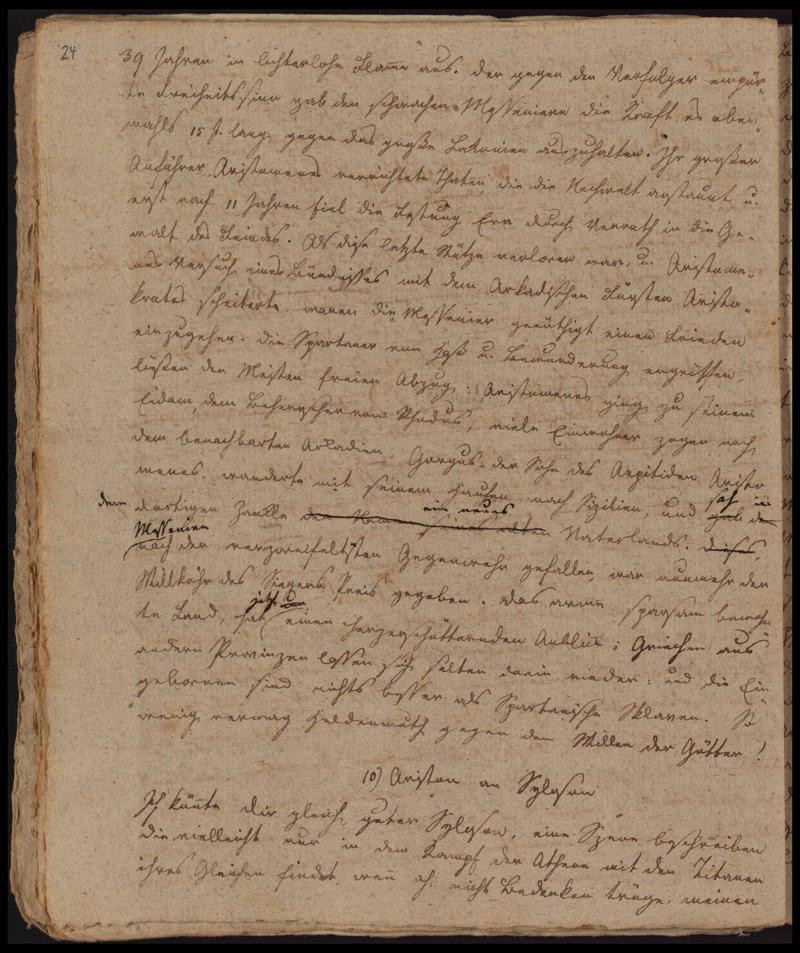 24
39 Jahren in lichterlohe Flamme aus. Der gegen den Verfolger empör-
te Freiheitssinn gab den schwachen Messeniern die Kraft es aber-
mahls 15 J. lang gegen das große Lakonien auszuhalten. Ihr großer
Anführer Aristomenes verrichtete Thaten, die die Nachwelt anstaunt u.
erst nach 11 Jahren fiel die Festung Era durch Verrath in die Ge-
walt des Feindes. Als diese letzte Stütze verloren war, u. Aristome-
nes Versuch eines Bündnisses mit dem Arkadischen Fürsten Aristo-
krates scheiterte, waren die Messenier genöthigt einen Frieden
einzugehen. Die Spartaner von Haß u. Bewunderung ergriffen,
ließen den Meisten freien Abzug. Aristomenes ging zu seinem
Eidam, dem Beherrscher von Rhodus, viele Einwohner zogen nach
dem benachbarten Arkadien. Gorgus der Sohn des Aepitiden Aristo
menes wanderte mit seinem Haufen nach Sizilien, und gab dem
sah im
dem dortigen Zankle den seines alten Vaterlands. dieses,
ein neues
Messenien
nach der verzweifeltsten Gegenwehr gefallen, war nunmehr der
Willkühr des Siegers Preis gegeben. Das arme sparsam bewohn
jetzt
te Land, hat einen herzerschütternden Anblick; Griechen aus
andern Provinzen lassen sich selten darin nieder; und die Ein
gebornen sind nichts besser als Spartanische Sklaven. So
wenig vermag Heldenmuth gegen den Willen der Götter!
10) Ariston an Syloson
Ich könnte dir gleich, guter Syloson, eine Szene beschreiben
die vielleicht nur in dem Kampf der Athene mit den Titanen
ihres Gleichen findet, wenn ich nicht Bedenken trüge, meinen